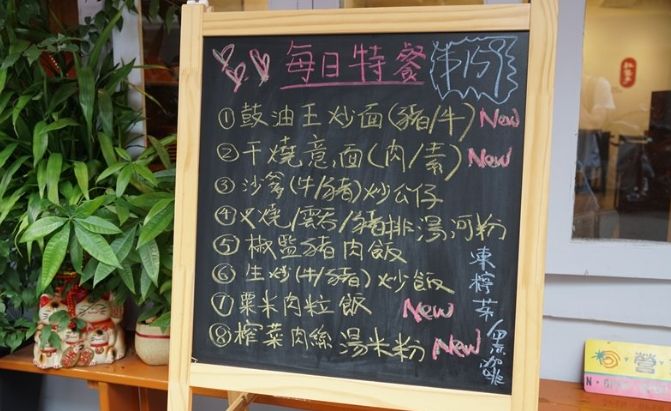 每日特餐
①鼓油王炒面(豬/牛) New
②干燒意面(肉/素) New
③沙爹(牛/豬)炒公仔
④叉燒/雲吞/豬排湯河粉
⑤椒監豬肉飯
⑥生炒(牛/豬)炒飯
⑦粟米肉粒飯 New
⑧榨菜肉絲湯米粉 New
東檸茶/黑咖啡
營